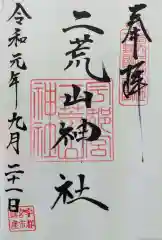 奉拝
二荒山神社
令和元年九月二十一日